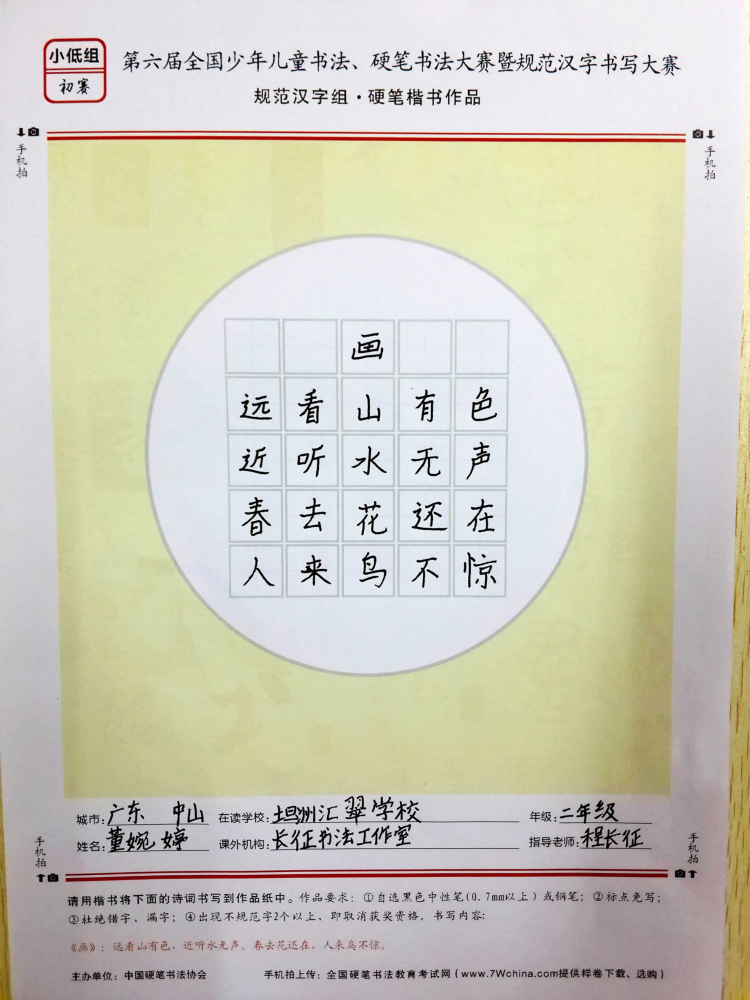 小低组
初赛
第六届全国少年儿童书法、硬笔书法大赛暨规范汉字书写大赛
规范汉字组·硬笔楷书作品
手机拍
手机拍
画
远看山有色
近听水无声
春去花还在
人来鸟不惊
城市:广东 中山 在读学校:坦洲汇翠学校 年级:二年级
姓名:董婉婷 课外机构:长征书法工作室 指导老师:程长征
手机拍
手机拍
请用楷书将下面的诗词书写到作品纸中。作品要求:①自选黑色中性笔(0.7mm以上)或钢笔;②标点免写;
③杜绝错字、漏字;④出现不规范字2个以上,即取消获奖资格。书写内容:
《画》:远看山有色,近听水无声。春去花还在,人来鸟不惊。
主办单位:中国硬笔书法协会 手机拍上传:全国硬笔书法教育考试网(www.7Wchina.com提供样卷下载、选购)